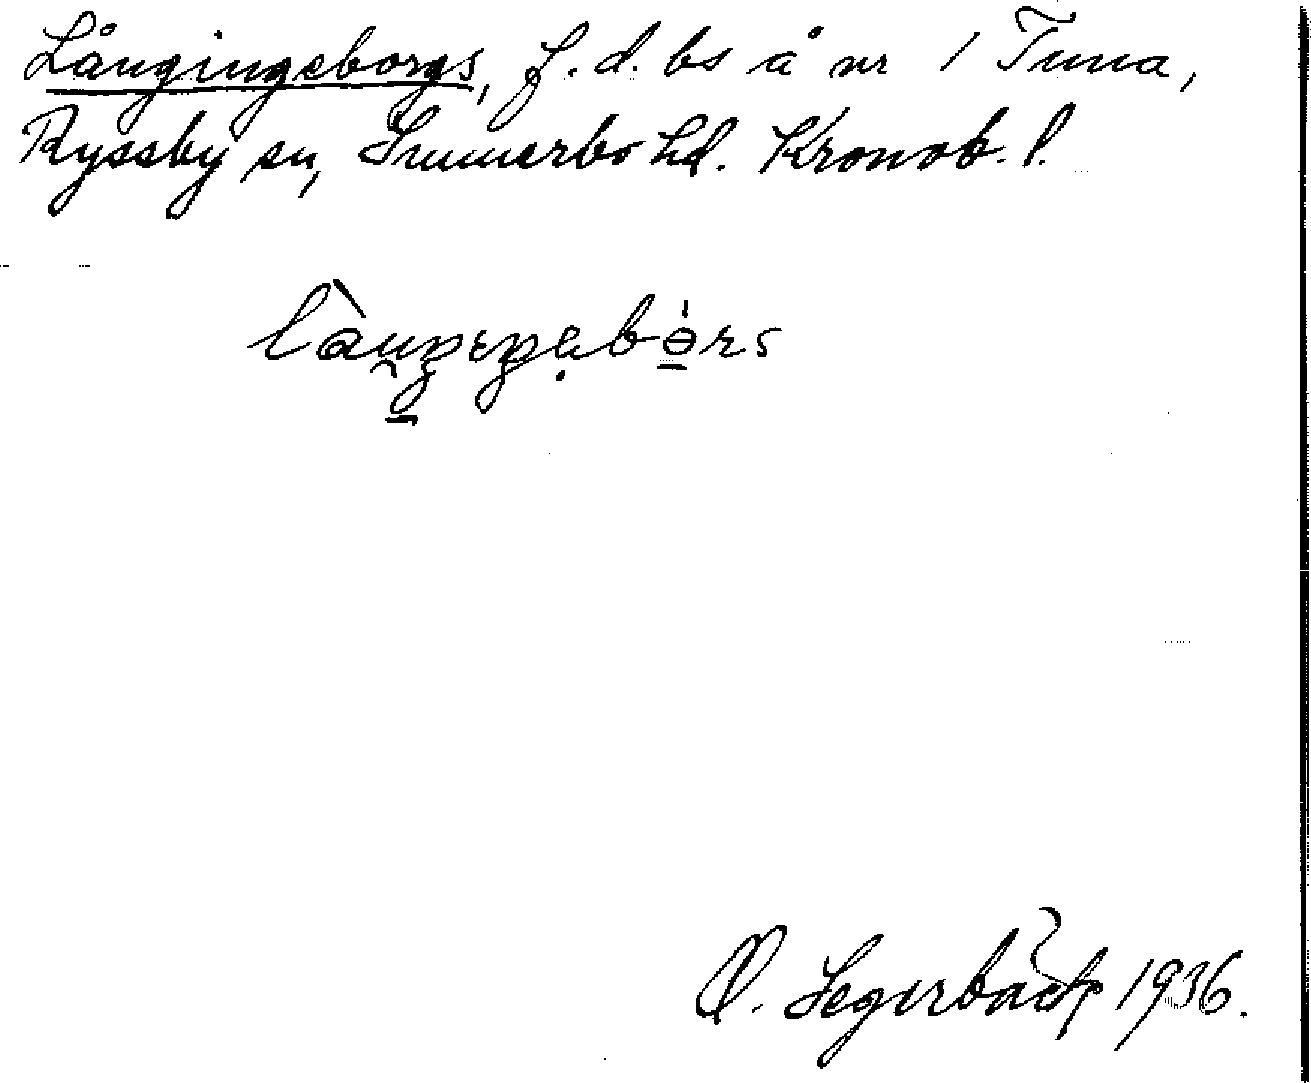 Långingeborgs, f.d. bs å nr 1 Tuna,
Ryssby sn, Sunnerbo hd. Kronob. l.
O. Segerbäck 1936.